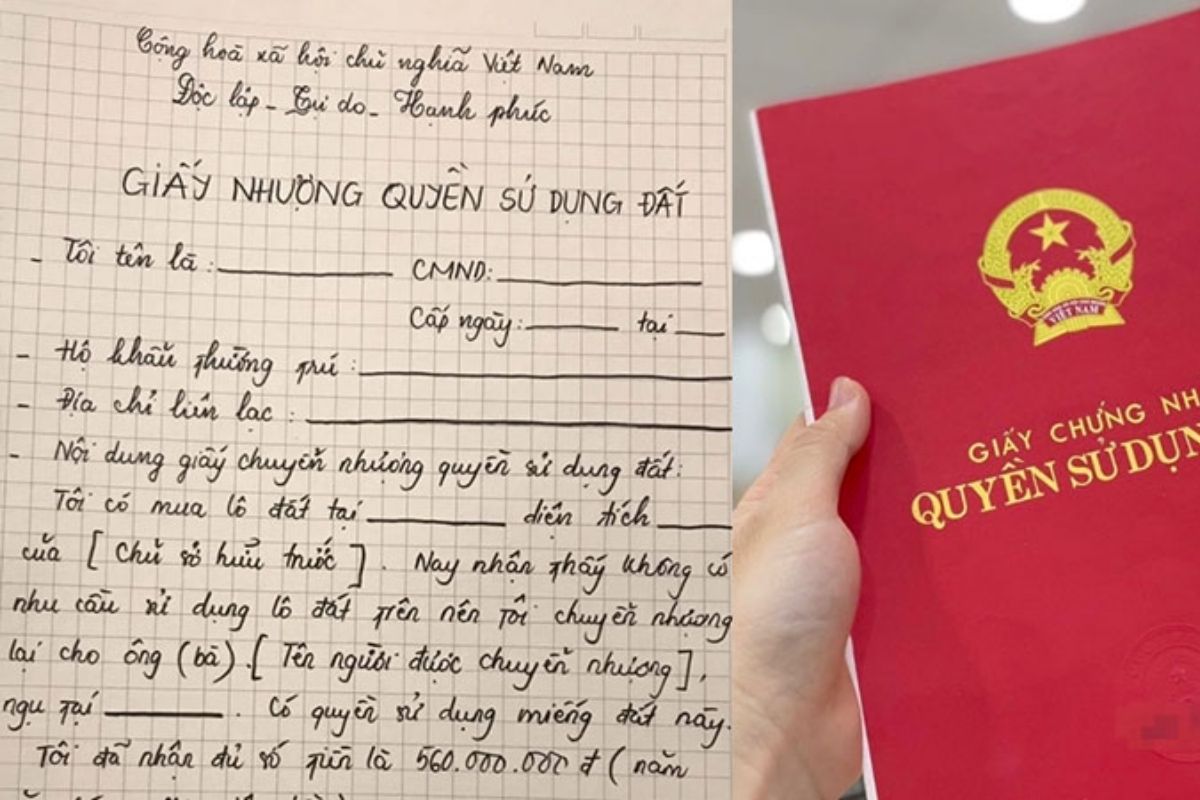 Cộng hoà xã hội chủ nghĩa Việt Nam
Độc lập - Tự do - Hạnh phúc
GIẤY NHƯỢNG QUYỀN SỬ DỤNG ĐẤT
- Tôi tên là : CMND:
Cấp ngày: tại
- Hộ khẩu thường trú :
- Địa chỉ liên lạc :
- Nội dung giấy chuyển nhượng quyền sử dụng đất:
Tôi có mua lô đất tại diện tích
của [ Chủ sở hữu trước ] . Nay nhận thấy không có
nhu cầu sử dụng lô đất trên nên tôi chuyển nhượng
lại cho ông (bà) [ Tên người được chuyển nhượng ],
ngụ tại . Có quyền sử dụng miếng đất này.
Tôi đã nhận đủ số tiền là 560.000.000 đ ( năm
VIỆT NAM
GIẤY CHỨNG NH
QUYỀN SỬ DỤN